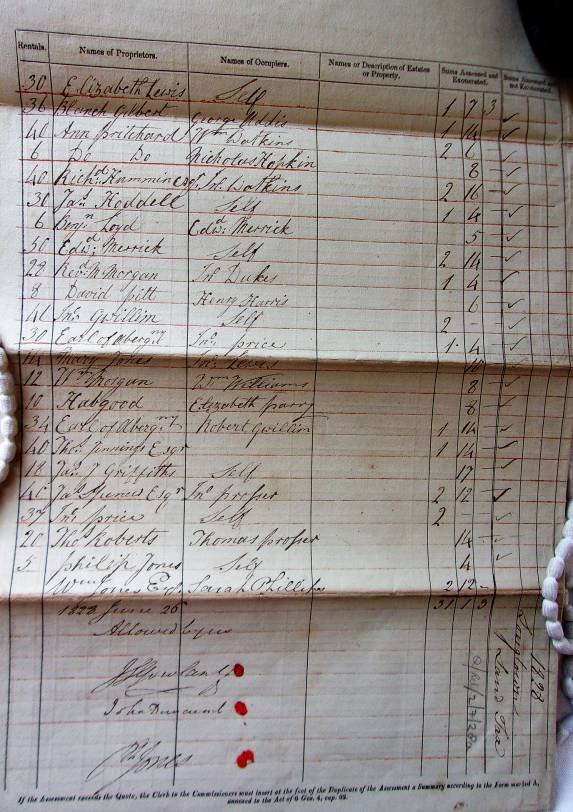 Rentals. Names of Proprietors. Names of Occupiers. Names or Description of Estates or Property. Sums Assessed and Exonerated. Sums Assessed and not Exonerated.
30 Elizabeth Lewis Self 1 7 3
36 Blanch Gilbert George 1 14
40 Ann Pritchard Wm Watkins 2 6
6 Do Do Nicholas Hopkin 8
40 Richd Hammin Esqr Jno Watkins 2 16
30 Jas Roddell Self 1 4
6 Benjn Loyd Edwd Merrick 5
50 Edwd Merrick Self 2 14
28 Revd M Morgan Jno Dukes 1 4
8 David Pitt Henry Harris 6
40 Jno Gwillim Self 2 -
30 Earl of Abergny Jno Price 1 4
Mary Jones Jno Lewis 10
12 Wm Morgan Wm Williams 8
10 Habgood Elizabeth Parry 8
34 Earl of Abergny Robert Gwillim 1 14
40 Thos Jennings Esqr 1 14
18 Jas J Griffiths Self 17
Jas Spencer Esqr Jno Prosser 2 12
37 Jno Price Self 2
20 Thos Roberts Thomas Prosser 14
5 Philip Jones Self 4
Wm Jones Esqr Sarah Phillips 2 12 -
1828 June 26 31 1 3
Allowed by us
John
Jones
1828
Land Tax
If the Assessment exceeds the Quota, the Clerk to the Commissioners must insert at the foot of the Duplicate of the Assessment a Summary according to the Form marked A, annexed to the Act of 6 Geo. 4, cap. 32.